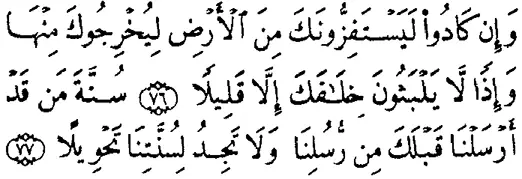 وَإِن كَادُوا۟ لَيَسْتَفِزُّونَكَ مِنَ ٱلْأَرْضِ لِيُخْرِجُوكَ مِنْهَا
وَإِذًا لَّا يَلْبَثُونَ خِلَـٰفَكَ إِلَّا قَلِيلًا ٧٦ سُنَّةَ مَن قَدْ
أَرْسَلْنَا قَبْلَكَ مِن رُّسُلِنَا وَلَا تَجِدُ لِسُنَّتِنَا تَحْوِيلًا ٧٧